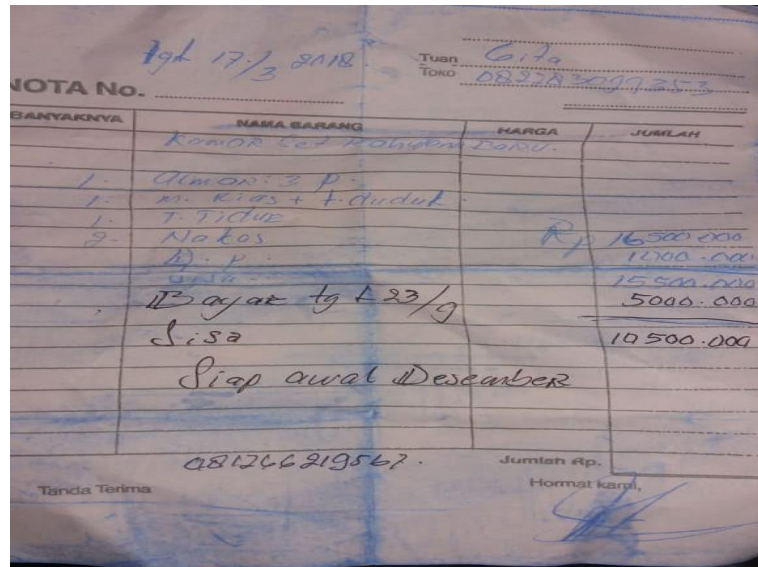 tgt 17/3 2018. Tuan Gita
Toko
NOTA No.
BANYAKNYA NAMA BARANG HARGA JUMLAH
Kamar Set
1. Almari 3 P.
1. M. Rias + t. duduk.
1. T. Tidur
2- Nakos Rp 16500.000
D. P. 1000.000
15500.000
Bayar tgl 23/9 5000.000
Sisa 10500.000
Siap awal Desember
081266219567. Jumlah Rp.
Tanda Terima Hormat kami,